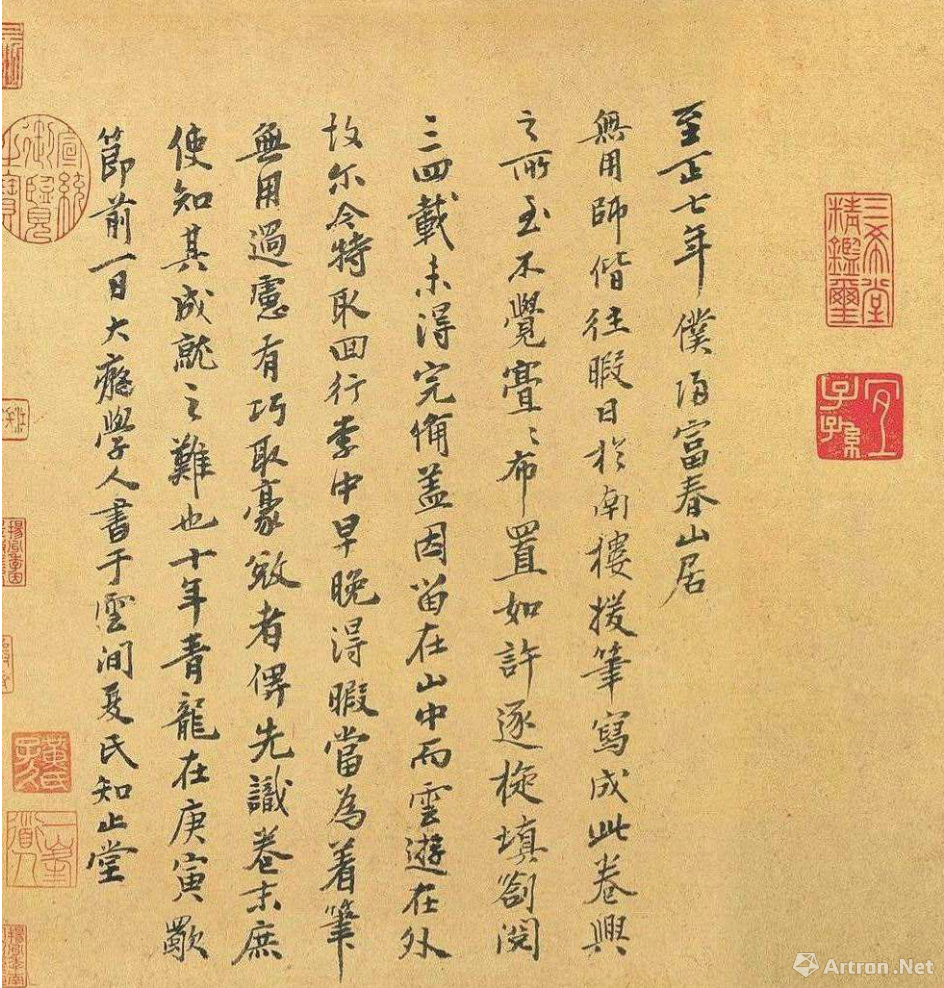 三希堂精鑑璽
宜子孫
至正七年僕歸富春山居
無用師偕往暇日於南樓援筆寫成此卷興
之所至不覺亹〻布置如許逐旋填劄閱
三四載未得完備盖因留在山中而雲遊在外
故尔今特取回行李中早晚得暇當為着筆
無用過慮有巧取豪敓者俾先識卷末庶
使知其成就之難也十年青龍在庚寅歜
節前一日大癡學人書于雲間夏氏知止堂
宣統御覽之寶
黃氏子久
一峯道人
Artron.Net